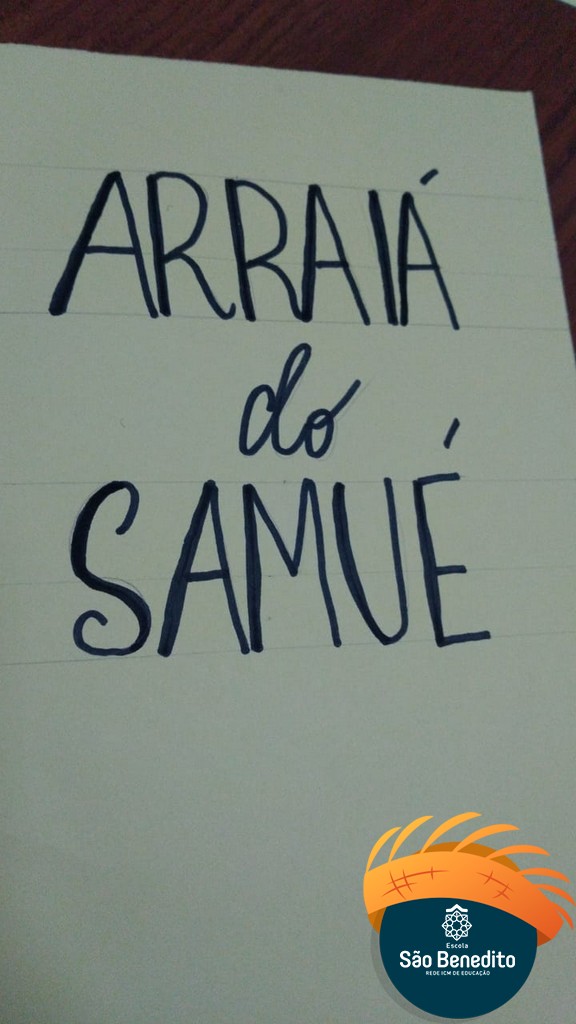 ARRAIÁ
do
SAMUÉ
Escola
São Benedito
REDE ICM DE EDUCAÇÃO